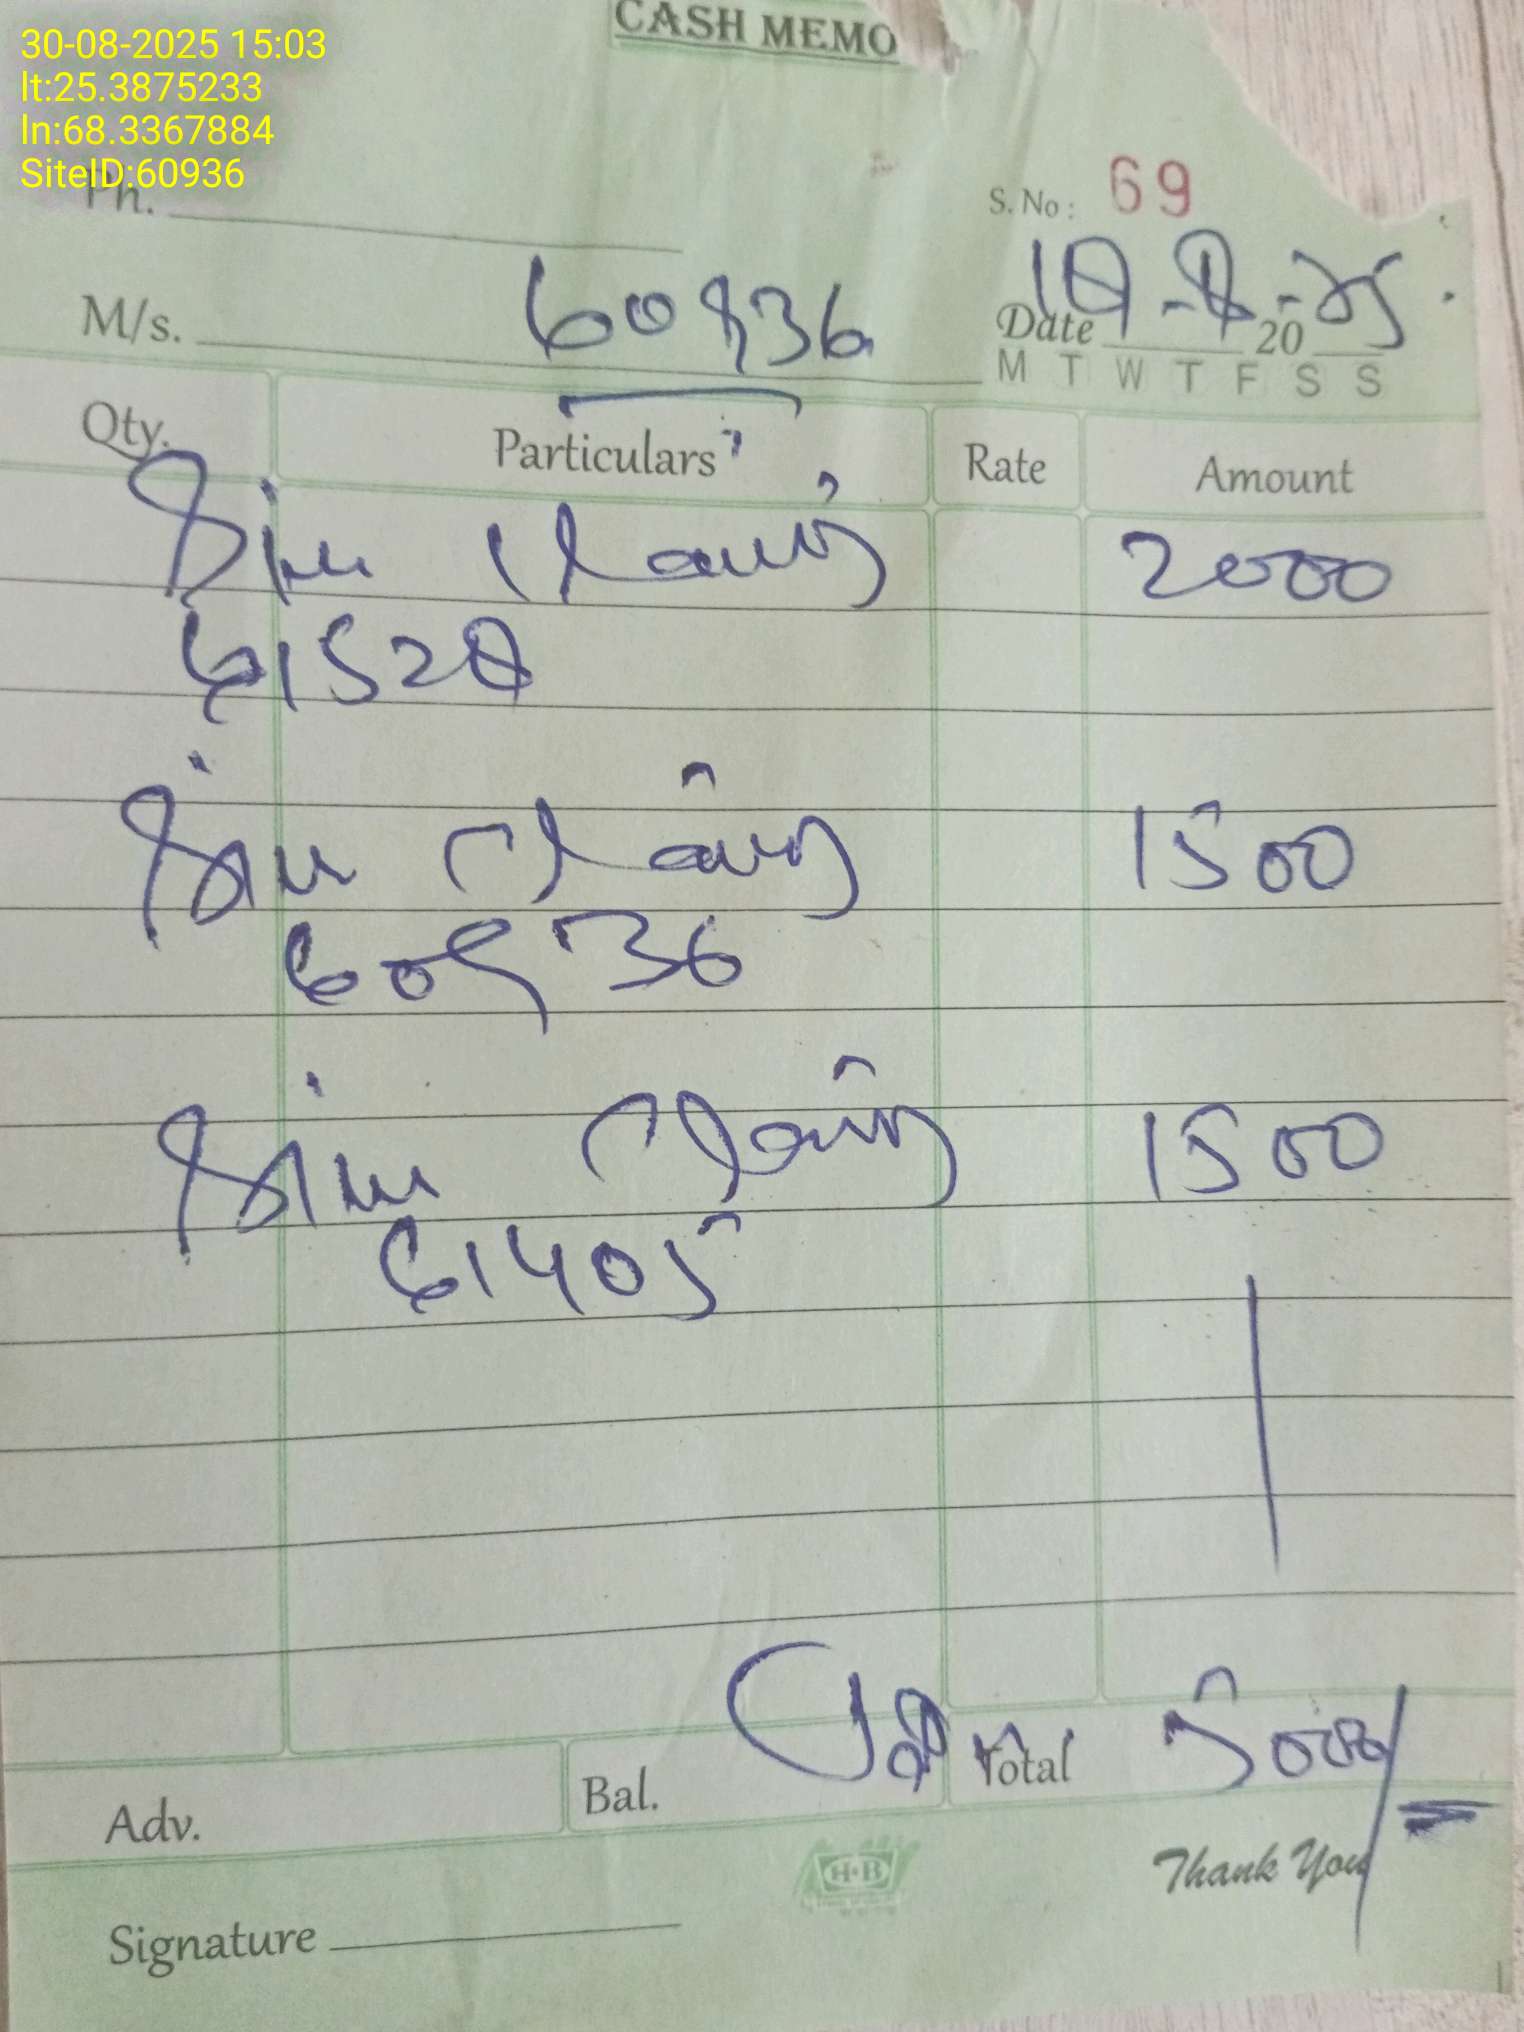 30-08-2025 15:03
lt:25.3875233
ln:68.3367884
SiteID:60936
CASH MEMO
Ph.
S. No: 69
M/s. 60936
Date 20 25
M T W T F S S
Qty. Particulars Rate Amount
2000
61528
1500
60936
1500
61405
Adv. Bal. Total 5000/=
H·B
Thank You
Signature